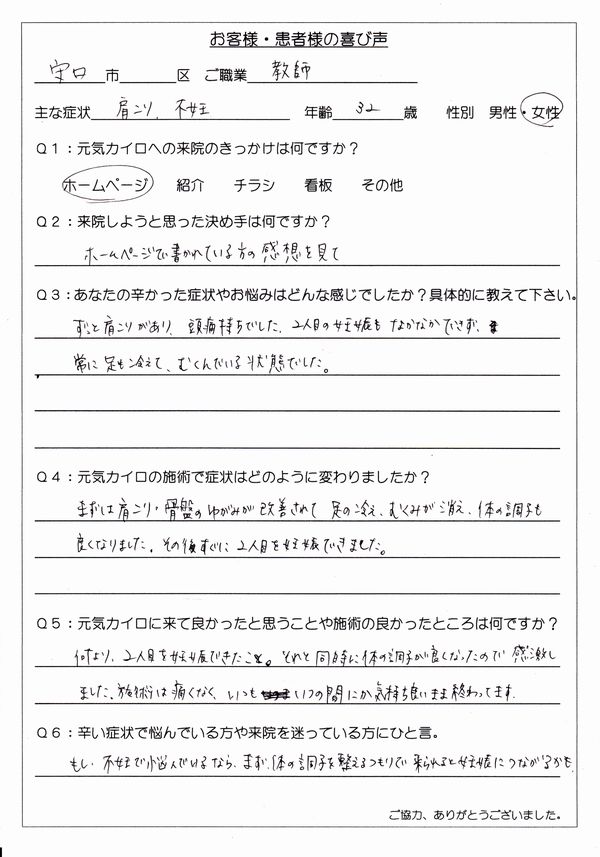 お客様・患者様の喜び声
守口 市 区 ご職業 教師
主な症状 肩こり、不妊 年齢 32 歳 性別 男性・女性
Q1：元気カイロへの来院のきっかけは何ですか？
ホームページ 紹介 チラシ 看板 その他
Q2：来院しようと思った決め手は何ですか？
ホームページで書かれている方の感想を見て
Q3：あなたの辛かった症状やお悩みはどんな感じでしたか？具体的に教えて下さい。
ずっと肩こりがあり、頭痛持ちでした。2人目の妊娠もなかなかできず、
常に足も冷えて、むくんでいる状態でした。
Q4：元気カイロの施術で症状はどのように変わりましたか？
まずは肩こり・骨盤のゆがみが改善されて 足の冷え、むくみが消え、体の調子も
良くなりました。その後すぐに2人目を妊娠できました。
Q5：元気カイロに来て良かったと思うことや施術の良かったところは何ですか？
何より、2人目を妊娠できたこと。それと同時に体の調子が良くなったので感激し
ました。施術は痛くなく、いつも いつの間にか気持ち良いまま終わってます。
Q6：辛い症状で悩んでいる方や来院を迷っている方にひと言。
もし、不妊で悩んでいるなら、まず、体の調子を整えるつもりで来られると妊娠につながるかも
ご協力、ありがとうございました。